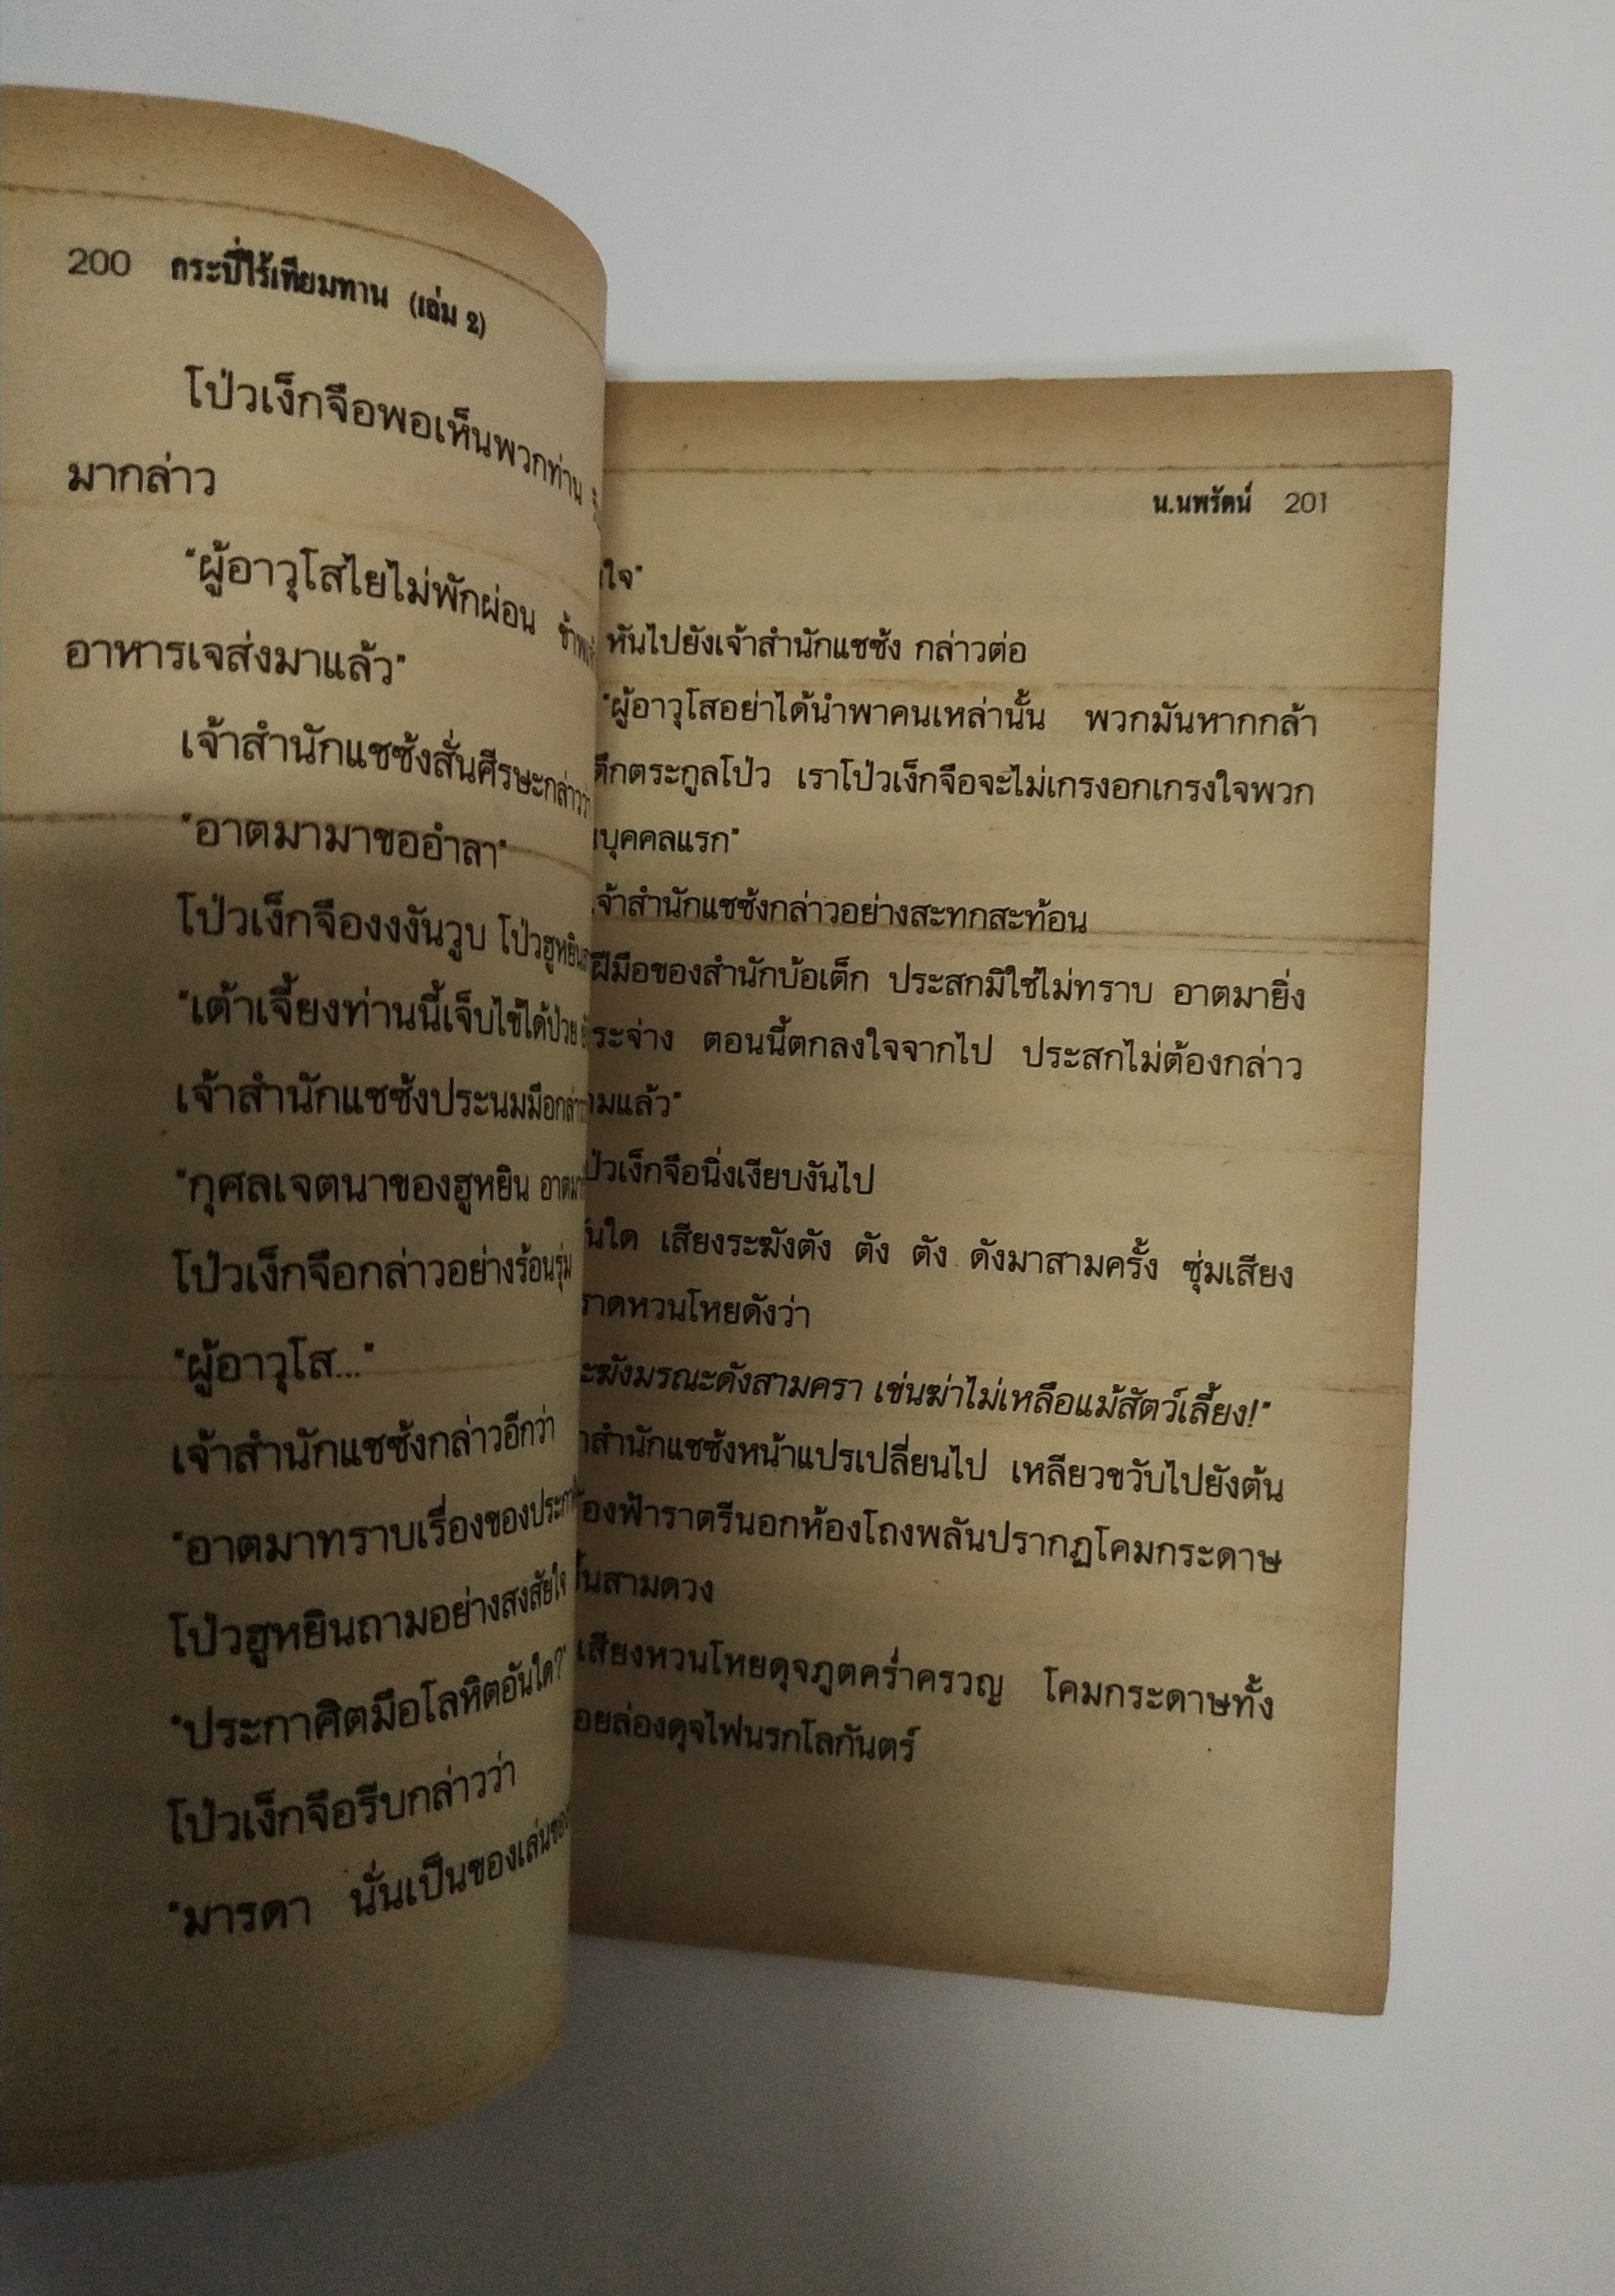 200 กระบี่ไร้เทียมทาน (เล่ม 2)
โป่วเง็กจือพอเห็นพวกท่าน
มากล่าว
"ผู้อาวุโสไยไม่พักผ่อน
อาหารเจส่งมาแล้ว"
เจ้าสำนักแชซ้งสั่นศีรษะกล่าวว่า
"อาตมามาขออำลา"
โป่วเง็กจืองงงันวูบ โป่วฮูหยิน
"เต้าเจี้ยงท่านนี้เจ็บไข้ได้ป่วย
เจ้าสำนักแชซ้งประนมมือกล่าว
"กุศลเจตนาของฮูหยิน อาตมา
โป่วเง็กจือกล่าวอย่างร้อนรุ่ม
"ผู้อาวุโส..."
เจ้าสำนักแชซ้งกล่าวอีกว่า
"อาตมาทราบเรื่องของประกา
โป่วฮูหยินถามอย่างสงสัยใจ
"ประกาศิตมือโลหิตอันใด?"
โป่วเง็กจือรีบกล่าวว่า
"มารดา นั่นเป็นของเล่นของ
น.นพรัตน์ 201
ใจ"
หันไปยังเจ้าสำนักแชซ้ง กล่าวต่อ
"ผู้อาวุโสอย่าได้นำพาคนเหล่านั้น พวกมันหากกล้า
ตึกตระกูลโป่ว เราโป่วเง็กจือจะไม่เกรงอกเกรงใจพวก
บุคคลแรก"
เจ้าสำนักแชซ้งกล่าวอย่างสะทกสะท้อน
ฝีมือของสำนักบ้อเต็ก ประสกมิใช่ไม่ทราบ อาตมายิ่ง
ระจ่าง ตอนนี้ตกลงใจจากไป ประสกไม่ต้องกล่าว
ามแล้ว"
ป่วเง็กจือนิ่งเงียบงันไป
ันใด เสียงระฆังดัง ตัง ตัง ดังมาสามครั้ง ซุ่มเสียง
ราดหวนโหยดังว่า
ะฆังมรณะดังสามครา เข่นฆ่าไม่เหลือแม้สัตว์เลี้ยง!"
าสำนักแชซ้งหน้าแปรเปลี่ยนไป เหลียวขวับไปยังต้น
้องฟ้าราตรีนอกห้องโถงพลันปรากฏโคมกระดาษ
ึ้นสามดวง
เสียงหวนโหยดุจภูตคร่ำครวญ โคมกระดาษทั้ง
อยล่องดุจไฟนรกโลกันตร์